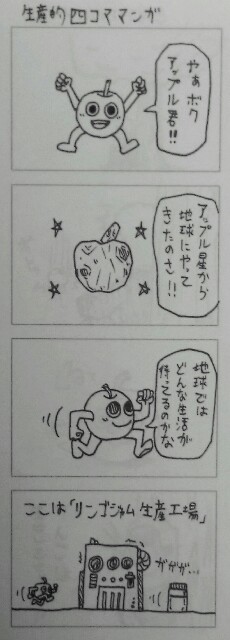 生産的四コママンガ
やぁボク
アップル君!!
アップル星から
地球にやって
きたのさ!!
地球では
どんな生活が
待ってるのかな
ここは「リンゴジャム生産工場」
ガガガ…